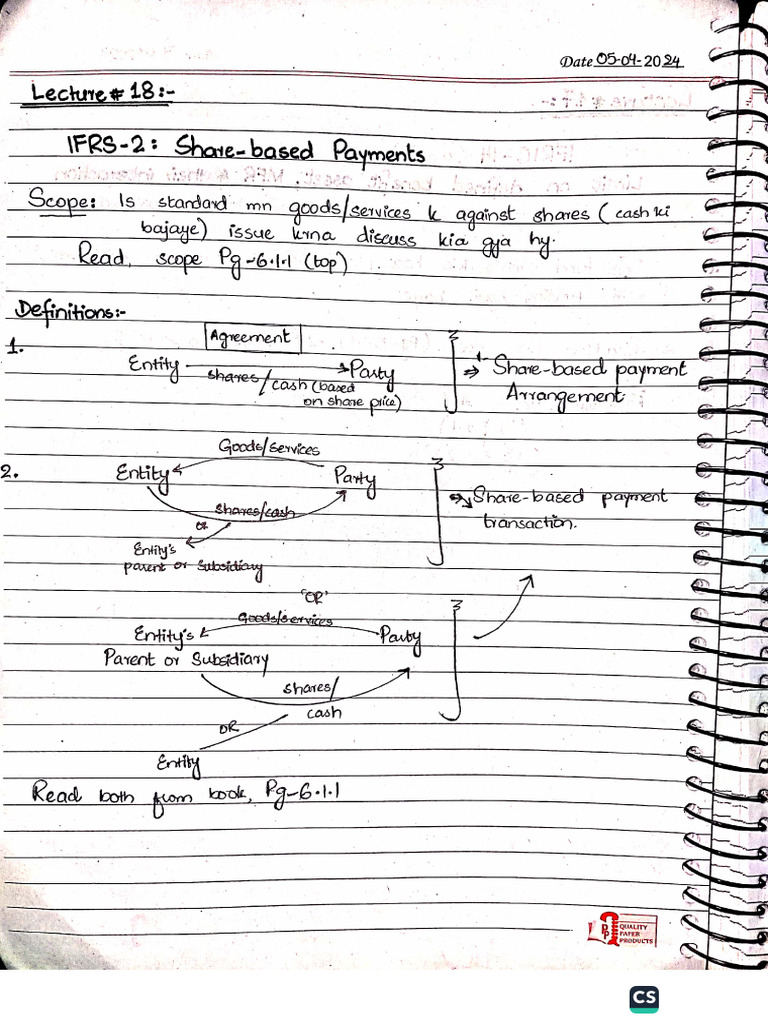 Date 05-04-2024
Lecture # 18:-
IFRS-2: Share-based Payments
Scope: Is standard mn goods/services k against shares (cash ki
bajaye) issue krna discuss kia gya hy.
Read, scope Pg-6.1.1 (top)
Definitions:-
Agreement
1.
Entity Party
shares/cash (based
on share price)
Share-based payment
Arrangement
Goods/services
2.
Entity Party
shares/cash
or
Entity's
parent or Subsidiary
Share-based payment
transaction.
"OR"
Goods/services
Entity's Party
Parent or Subsidiary
shares/
cash
OR
Entity
Read both from book, Pg-6.1.1
QUALITY
PAPER
PRODUCTS
CS